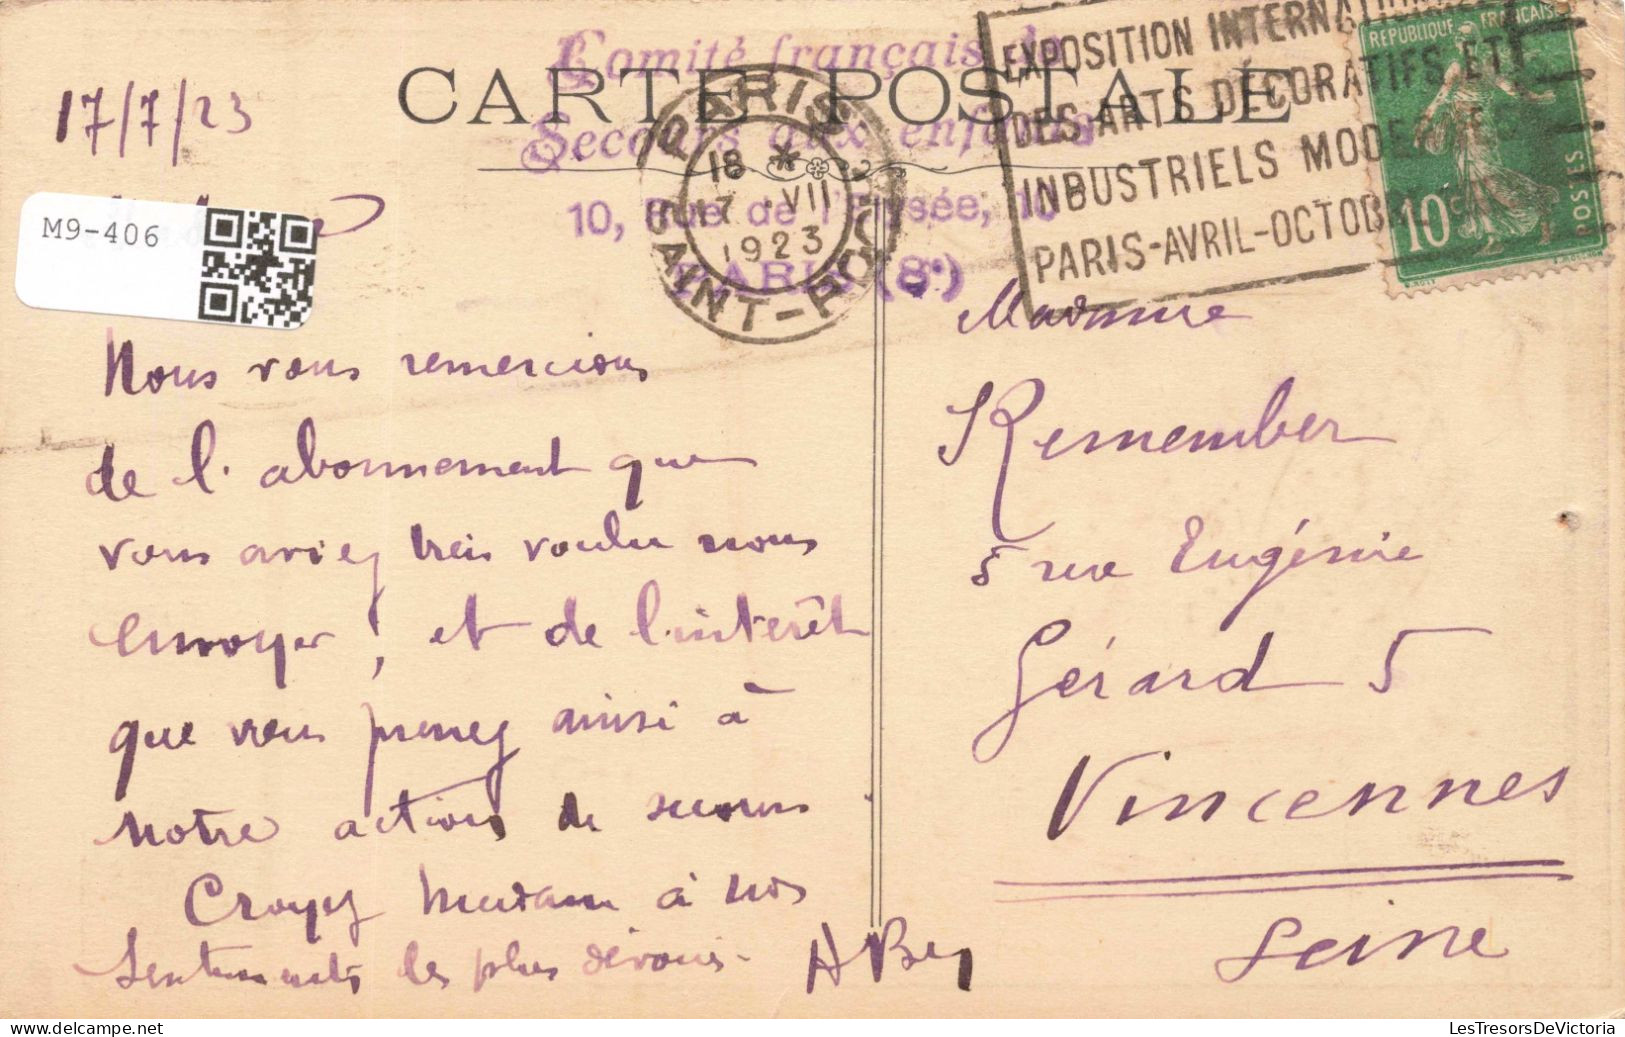 CARTE POSTALE
Comité français de
Secours aux enfants
10, Rue de l'Elysée, 10
PARIS (8e)
PARIS
18 *
17 · VII
1923
SAINT-ROCH
EXPOSITION INTERNATIONALE
DES ARTS DÉCORATIFS ET
INDUSTRIELS MODERNES
PARIS-AVRIL-OCTOB
REPUBLIQUE FRANÇAISE
10c
POSTES
17/7/23
M9-406
Nous vous remercions
de l'abonnement que
vous aviez bien voulu nous
envoyer, et de l'intérêt
que vous prenez ainsi à
notre action de secours
Croyez Madame à nos
sentiments les plus dévoués.
Madame
Remember
5 rue Eugénie
Gérard 5
Vincennes
Seine
LesTresorsDeVictoria | delcampe.net